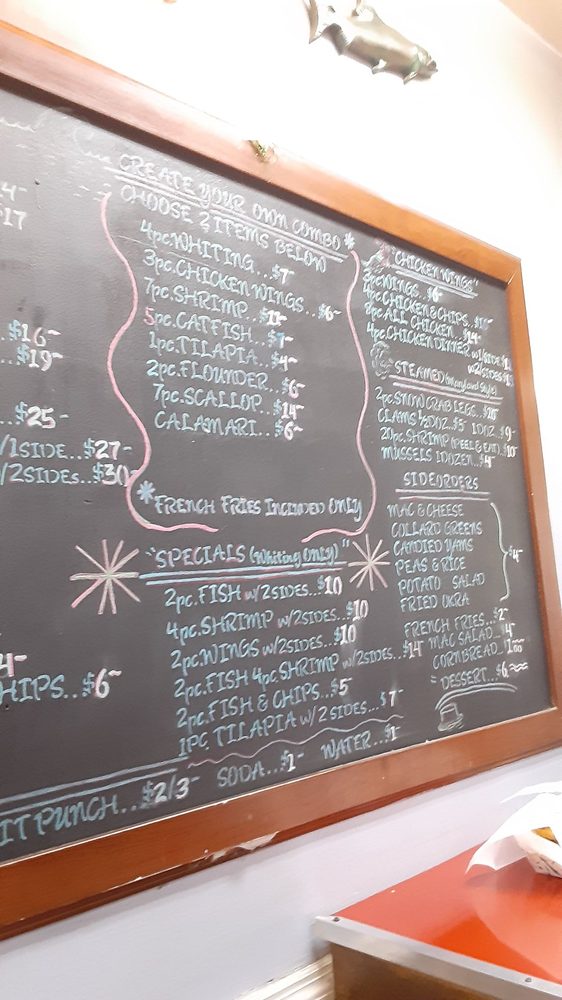 4-
$17
..$16-
...$19-
...$25-
/1SIDE...$27-
/2SIDES...$30
4-
HIPS...$6-
IT PUNCH...$2/3-
SODA...$1- WATER...$1-
CREATE YOUR OWN COMBO*
CHOOSE 2 ITEMS BELOW
4pc.WHITING...$7
3pc.CHICKEN WINGS...$6-
7pc.SHRIMP...$11-
5pc.CATFISH...$7-
1pc.TILAPIA...$4-
2pc.FLOUNDER...$6-
7pc.SCALLOP...$14-
CALAMARI...$6-
*FRENCH FRIES INCLUDED ONLY
"SPECIALS (Whiting ONLY)"
2pc.FISH w/2SIDES...$10
4pc.SHRIMP w/2SIDES...$10
2pc.WINGS w/2SIDES...$10
2pc.FISH 4pc.SHRIMP w/2SIDES...$14-
2pc.FISH & CHIPS...$5-
1PC TILAPIA w/2 SIDES...$7-
"CHICKEN WINGS"
WINGS...$6-
CHICKEN & CHIPS...
ALL CHICKEN...
4pc.CHICKEN DINNER w/1side
w/2SIDES
STEAMED (Maryland Style)
2pc.SNOW CRAB LEGS...
CLAMS ½DOZ.$5 1DOZ.$9-
20pc.SHRIMP (PEEL & EAT)...$10
MUSSELS 1DOZEN...
SIDE ORDERS
MAC & CHEESE
COLLARD GREENS
CANDIED YAMS
PEAS & RICE
POTATO SALAD
FRIED OKRA
$4-
FRENCH FRIES...$2-
MAC SALAD...$4-
CORNBREAD...1.00
"DESSERT...$6